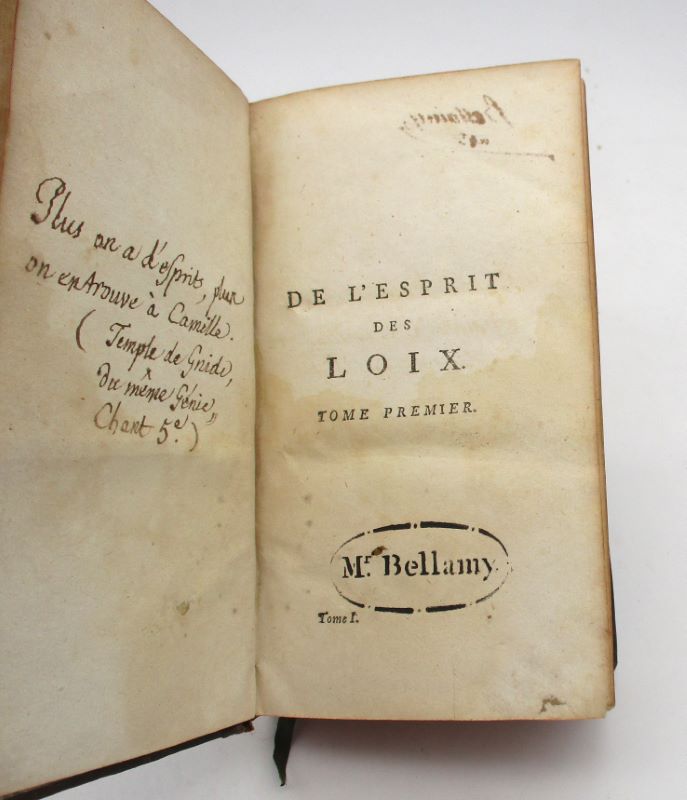 Plus on a d'esprit, plus
on en trouve à Camille.
(Temple de Gnide,
du même Génie,
Chant 5e.)
DE L'ESPRIT
DES
LOIX.
TOME PREMIER.
Mr. Bellamy.
Tome I.